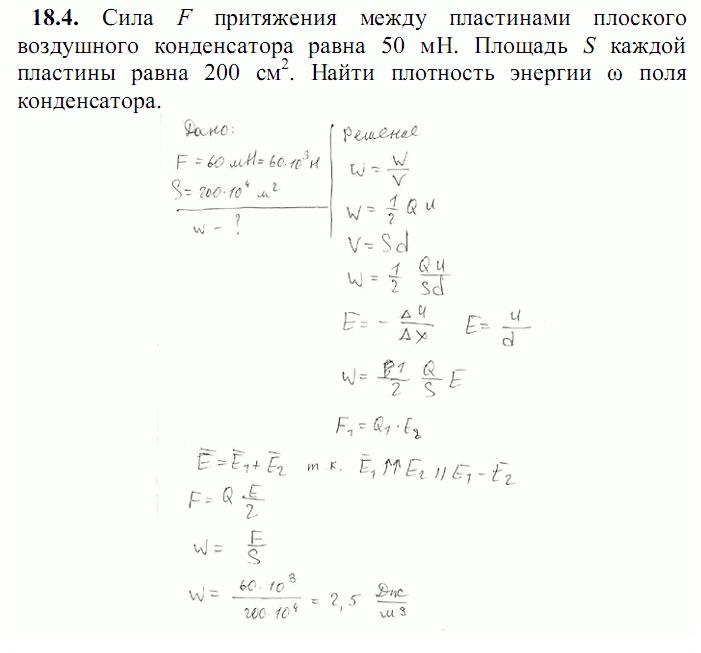 18.4. Сила F притяжения между пластинами плоского
воздушного конденсатора равна 50 мН. Площадь S каждой
пластины равна 200 см². Найти плотность энергии ω поля
конденсатора.
Дано:
F = 60 мН = 60·10³ Н
S = 200·10⁴ м²
w - ?
Решение
W = W/V
W = 1/2 Q U
V = Sd
W = 1/2 QU/Sd
E = - ΔU/Δx E = U/d
W = 1/2 Q/S E
F₁ = Q₁·E₂
E̅ = E̅₁ + E̅₂ т.к. E̅₁ ⇈ E₂ || E₁ - E₂
F = Q E/2
W = F/S
W = 60·10³/200·10⁴ = 2,5 Дж/м3